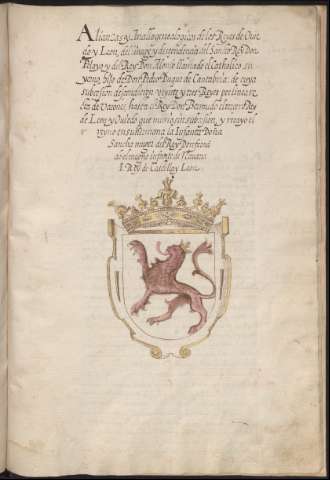 Alianças y Arbol genealogico de los Reyes de Ouie
do y Leon, del linage y descendencia del Sancto Rey Don
Pelayo y del Rey Don Alonso llamado el Catholico su
yerno, hijo de Don Pedro Duque de Cantabria: de cuya
subcesion descendieron veynte y tres Reyes por linea re
cta de Varones, hasta el Rey Don Bermudo tercero Rey
de Leon y Ouiedo que murio sin subcesion, y recayo el
reyno en su hermana la Infanta Doña
Sancha muger del Rey Don Fernā
do el magno
I. Rey de Castilla y Leon.